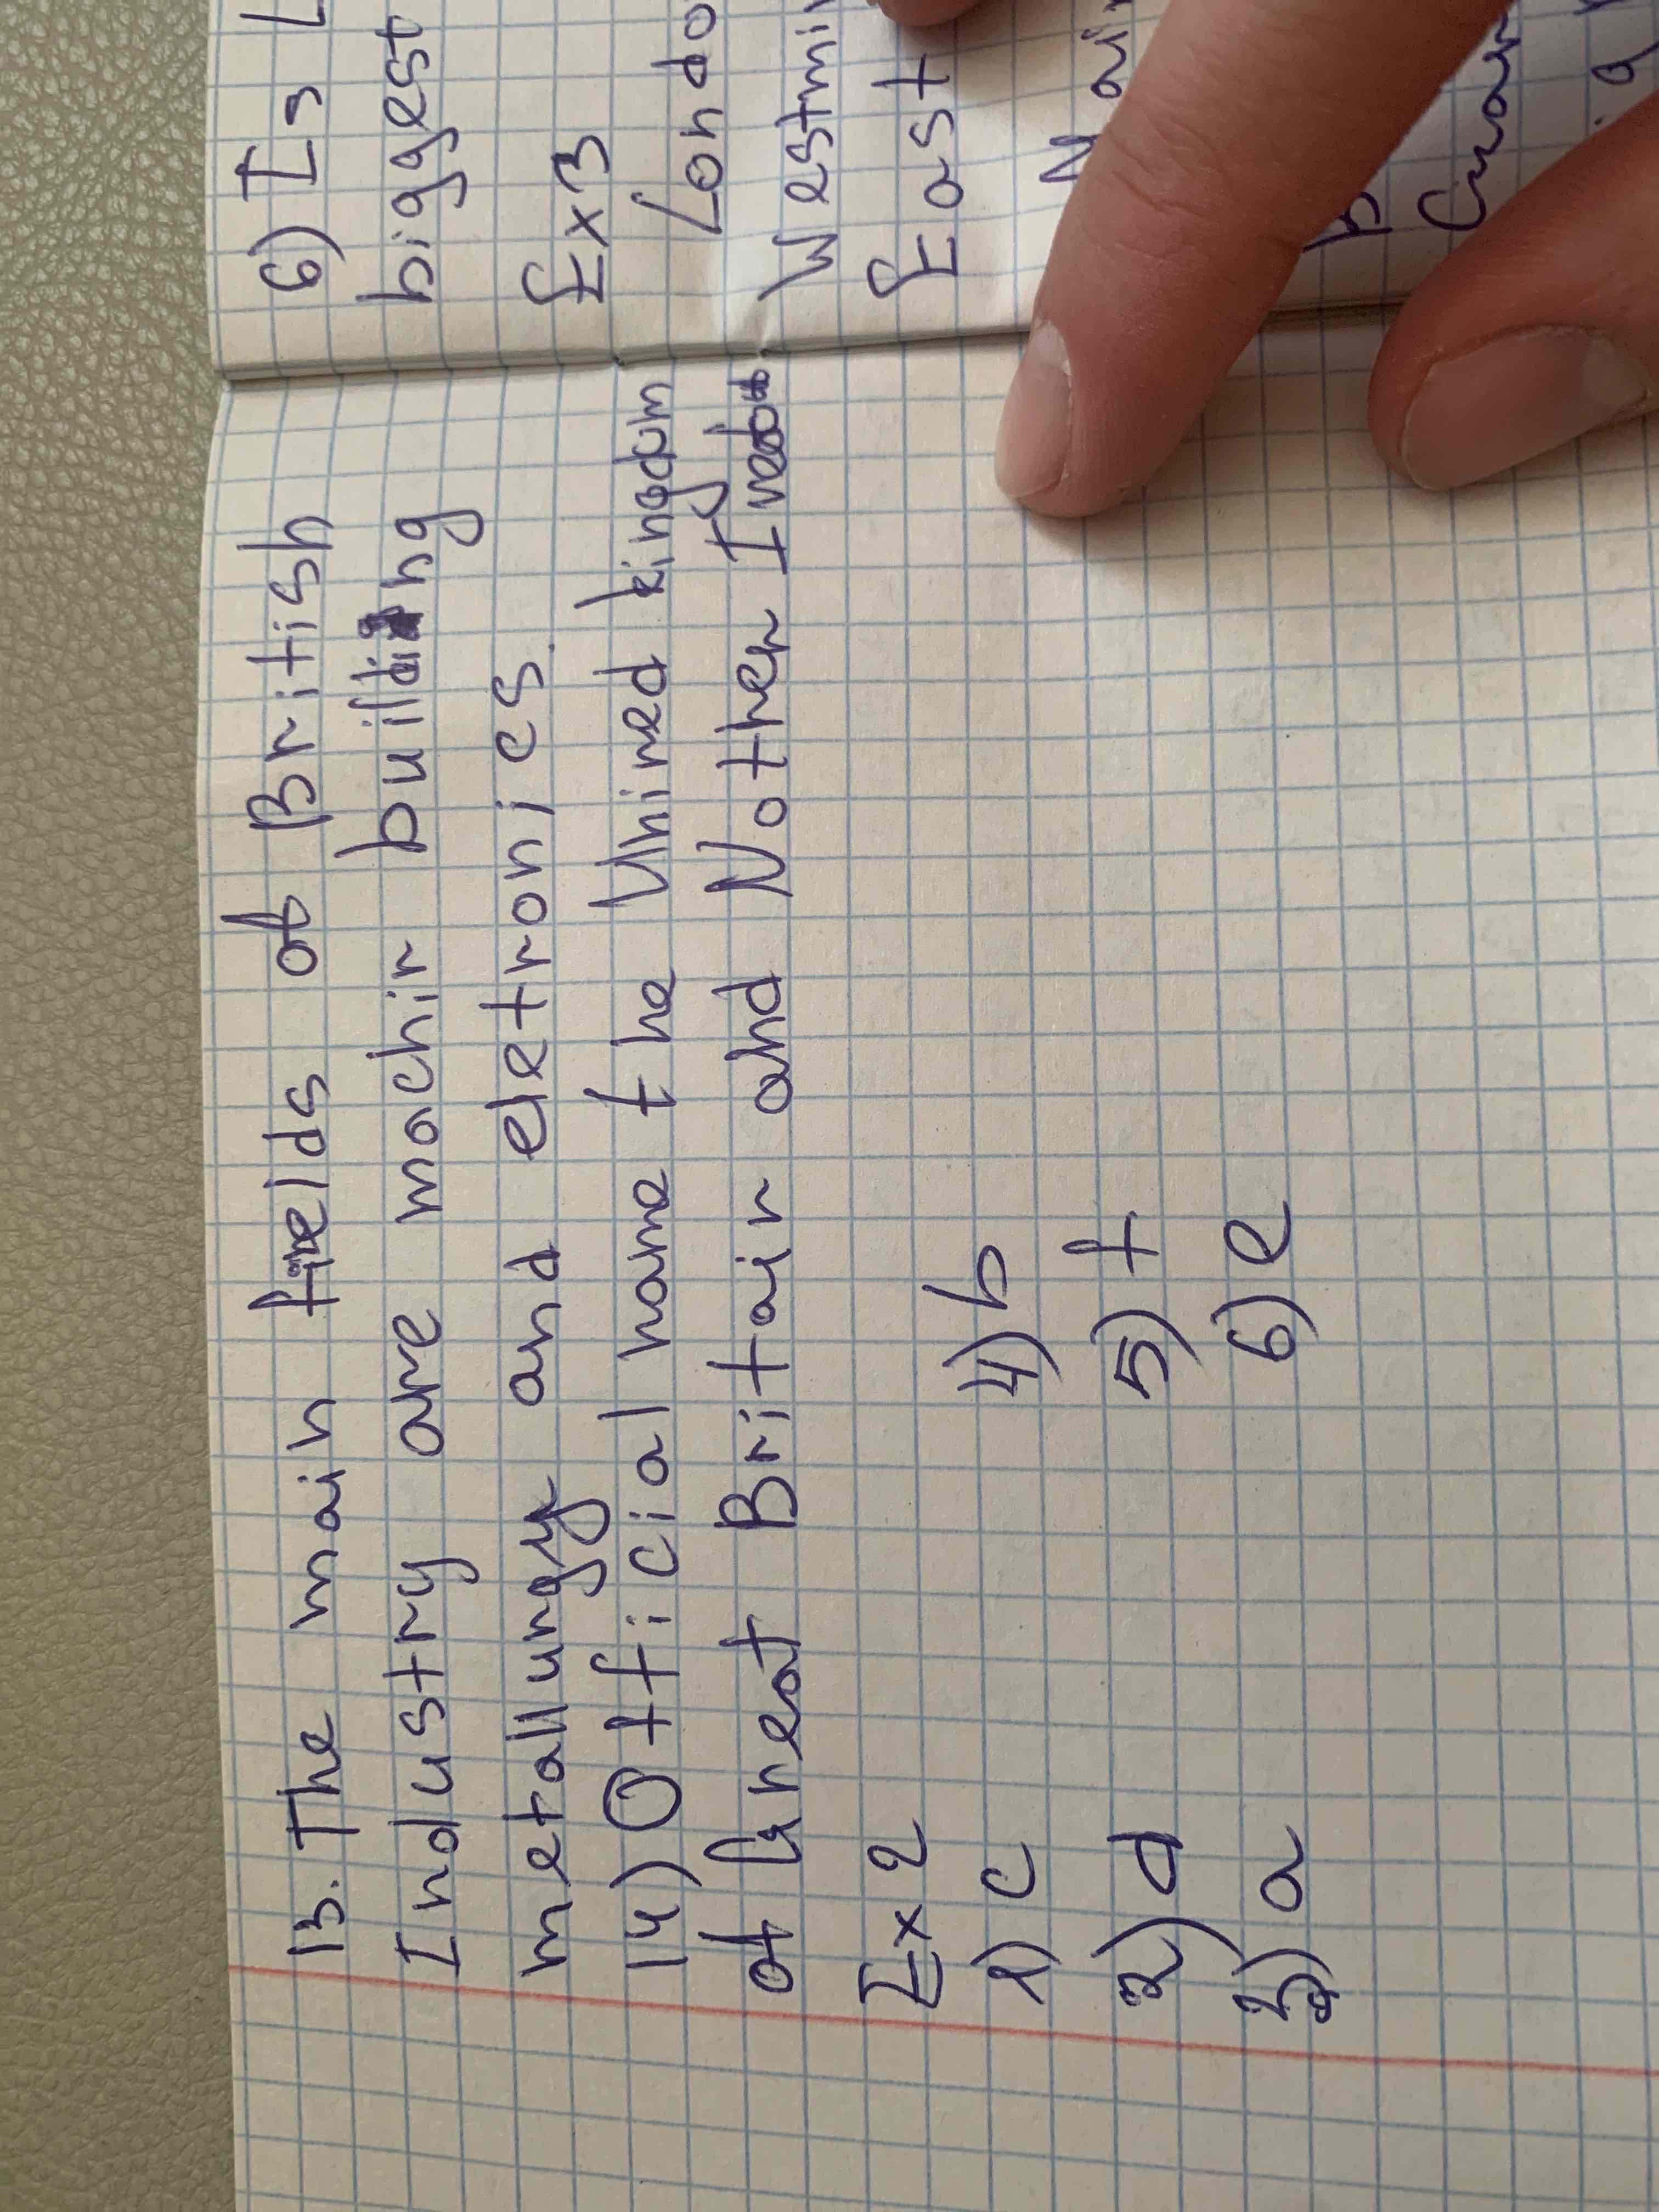 13. The main fields of British
Industry are machin building
metallurgy and eletronics.
14) Official name the Unined kingdom
of Great Britain and Nother
Ex 2
1) c
2) d
3) a
4) b
5) f
6) e
6) Is
biggest
Ex3
East